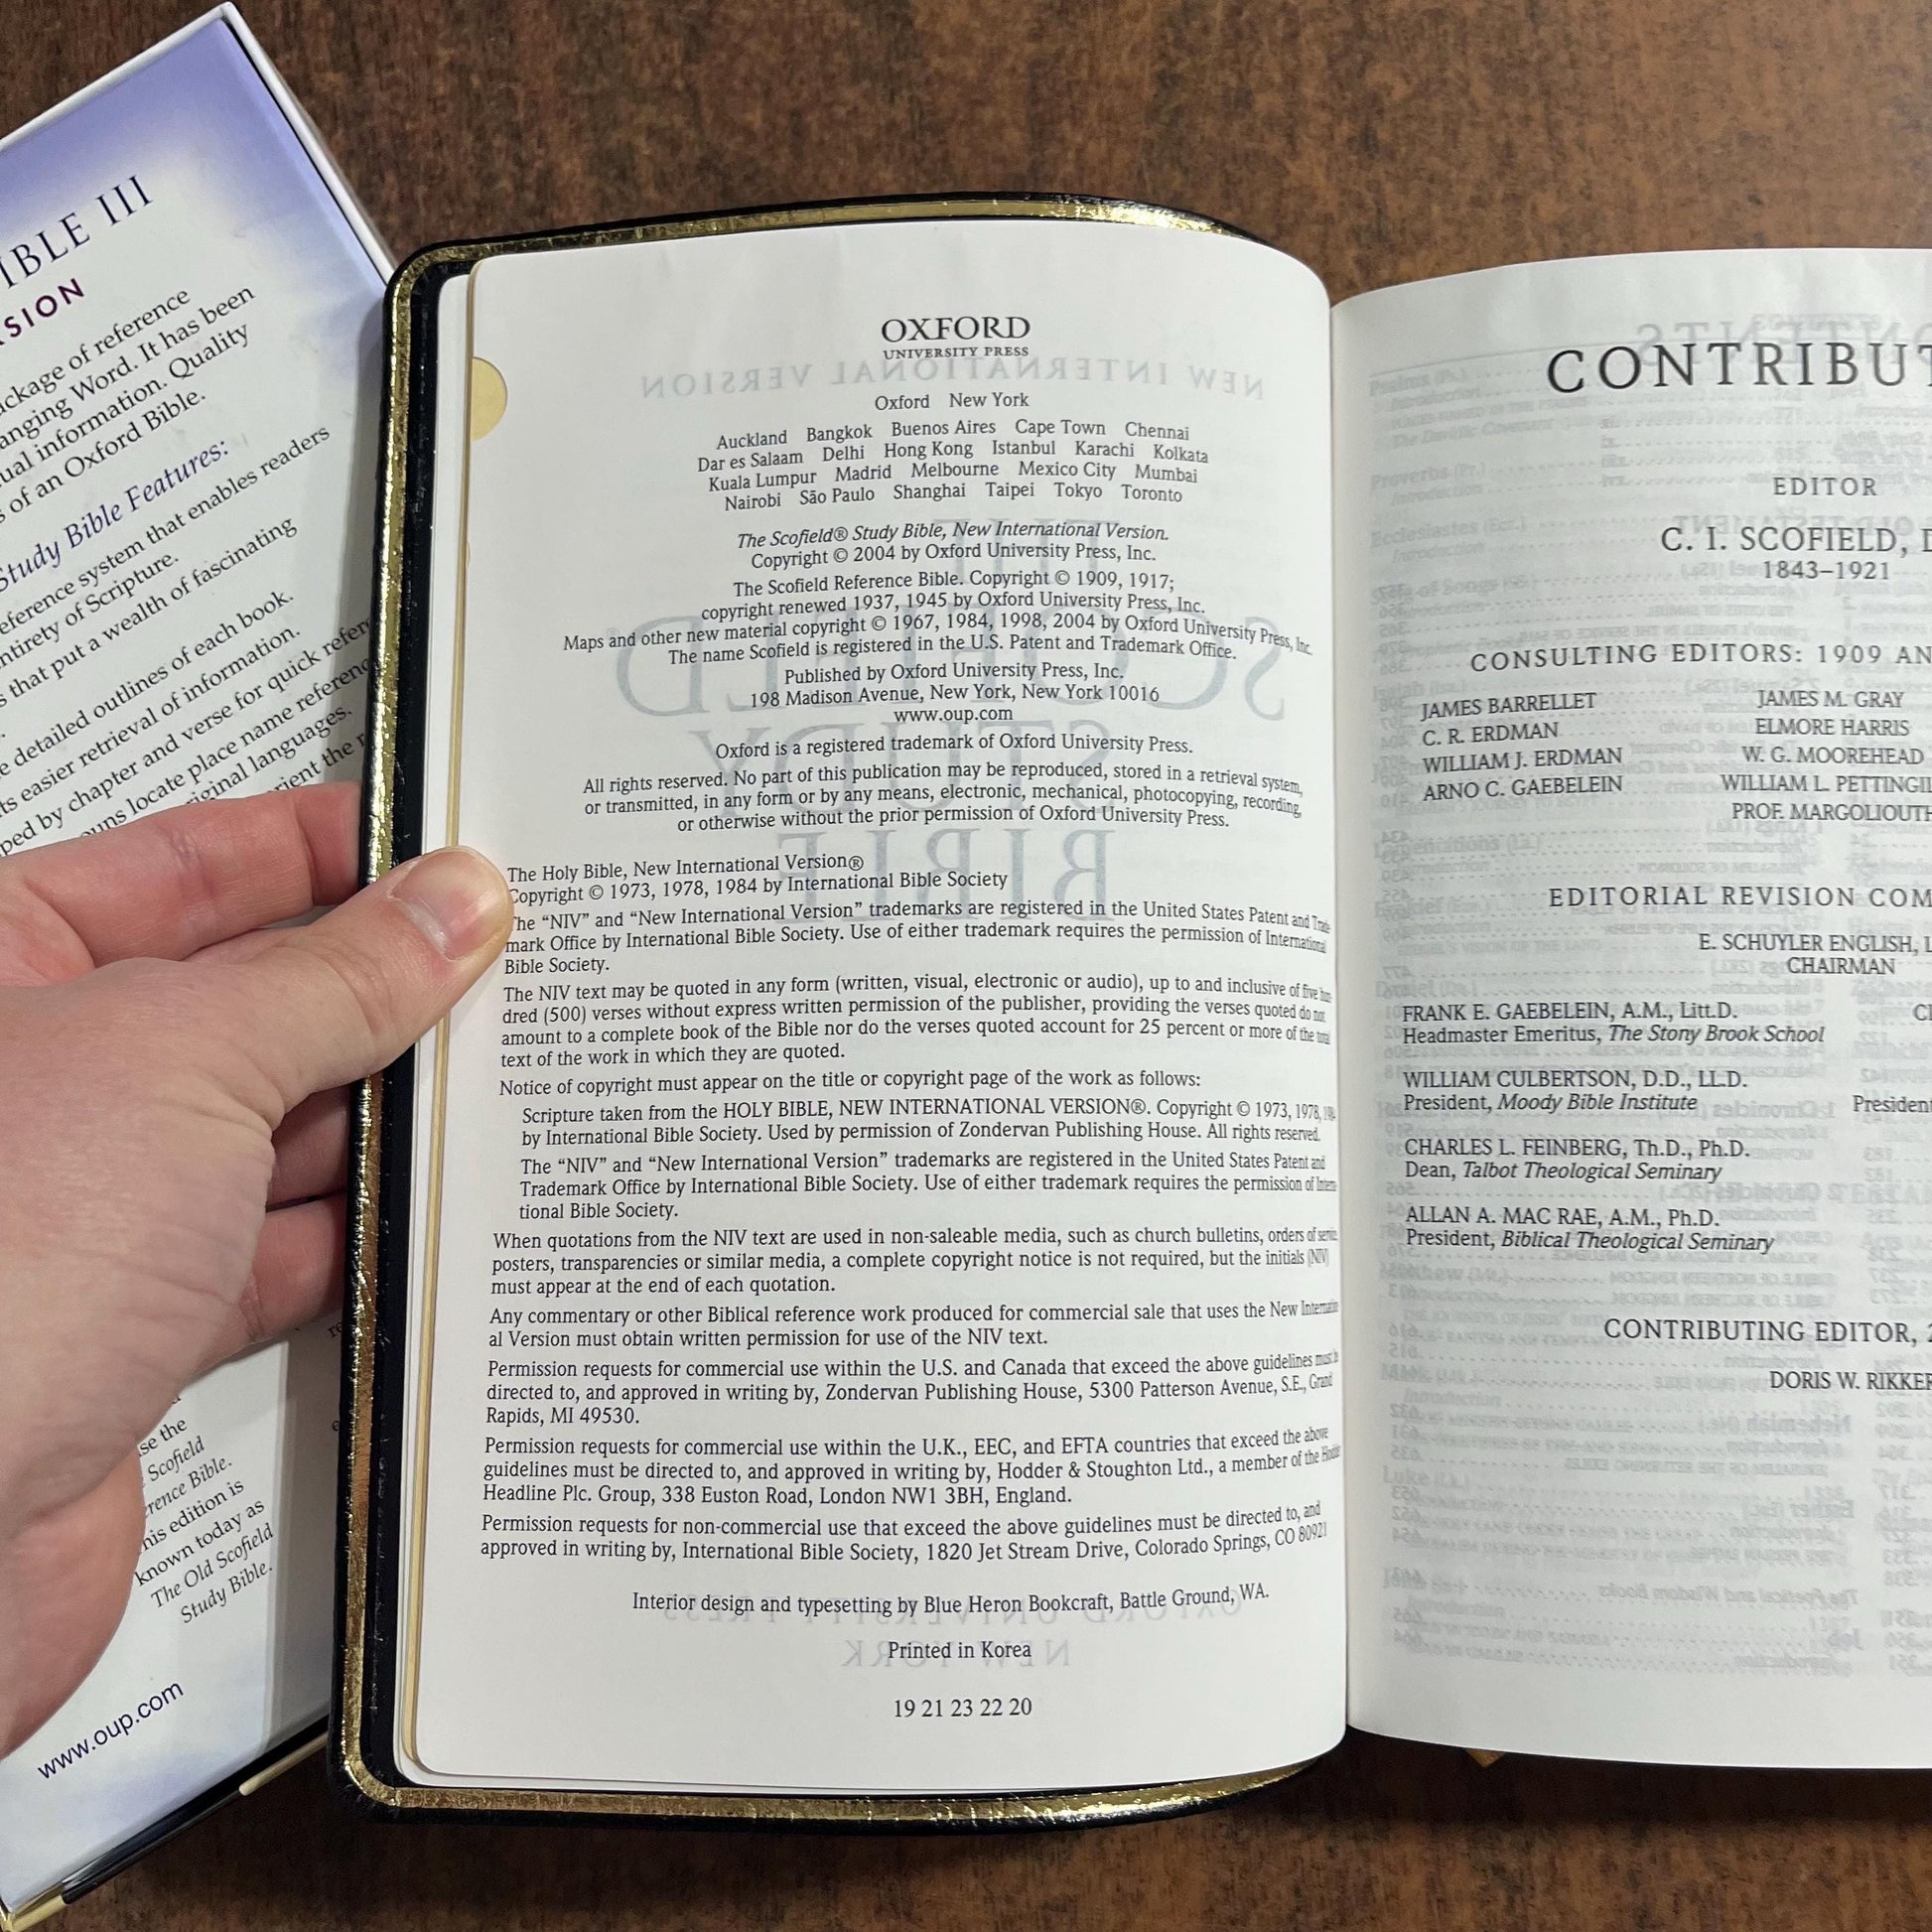 IBLE III
SION
ackage of reference
anging Word. It has been
ual information. Quality
s of an Oxford Bible.
Study Bible Features:
eference system that enables readers
ntirety of Scripture.
s that put a wealth of fascinating
e detailed outlines of each book.
ts easier retrieval of information.
ped by chapter and verse for quick refer
ouns locate place name referenc
riginal languages.
rient the r
se the
Scofield
rence Bible.
his edition is
known today as
The Old Scofield
Study Bible.
www.oup.com
OXFORD
UNIVERSITY PRESS
Oxford New York
Auckland Bangkok Buenos Aires Cape Town Chennai
Dar es Salaam Delhi Hong Kong Istanbul Karachi Kolkata
Kuala Lumpur Madrid Melbourne Mexico City Mumbai
Nairobi São Paulo Shanghai Taipei Tokyo Toronto
The Scofield® Study Bible, New International Version.
Copyright © 2004 by Oxford University Press, Inc.
The Scofield Reference Bible. Copyright © 1909, 1917;
copyright renewed 1937, 1945 by Oxford University Press, Inc.
Maps and other new material copyright © 1967, 1984, 1998, 2004 by Oxford University Press, Inc.
The name Scofield is registered in the U.S. Patent and Trademark Office.
Published by Oxford University Press, Inc.
198 Madison Avenue, New York, New York 10016
www.oup.com
Oxford is a registered trademark of Oxford University Press.
All rights reserved. No part of this publication may be reproduced, stored in a retrieval system,
or transmitted, in any form or by any means, electronic, mechanical, photocopying, recording,
or otherwise without the prior permission of Oxford University Press.
The Holy Bible, New International Version®
Copyright © 1973, 1978, 1984 by International Bible Society
The “NIV” and “New International Version” trademarks are registered in the United States Patent and Trade-
mark Office by International Bible Society. Use of either trademark requires the permission of International
Bible Society.
The NIV text may be quoted in any form (written, visual, electronic or audio), up to and inclusive of five hun-
dred (500) verses without express written permission of the publisher, providing the verses quoted do not
amount to a complete book of the Bible nor do the verses quoted account for 25 percent or more of the total
text of the work in which they are quoted.
Notice of copyright must appear on the title or copyright page of the work as follows:
Scripture taken from the HOLY BIBLE, NEW INTERNATIONAL VERSION®. Copyright © 1973, 1978, 1984
by International Bible Society. Used by permission of Zondervan Publishing House. All rights reserved.
The “NIV” and “New International Version” trademarks are registered in the United States Patent and
Trademark Office by International Bible Society. Use of either trademark requires the permission of Interna-
tional Bible Society.
When quotations from the NIV text are used in non-saleable media, such as church bulletins, orders of service,
posters, transparencies or similar media, a complete copyright notice is not required, but the initials (NIV)
must appear at the end of each quotation.
Any commentary or other Biblical reference work produced for commercial sale that uses the New Internation-
al Version must obtain written permission for use of the NIV text.
Permission requests for commercial use within the U.S. and Canada that exceed the above guidelines must be
directed to, and approved in writing by, Zondervan Publishing House, 5300 Patterson Avenue, S.E., Grand
Rapids, MI 49530.
Permission requests for commercial use within the U.K., EEC, and EFTA countries that exceed the above
guidelines must be directed to, and approved in writing by, Hodder & Stoughton Ltd., a member of the Hodder
Headline Plc. Group, 338 Euston Road, London NW1 3BH, England.
Permission requests for non-commercial use that exceed the above guidelines must be directed to, and
approved in writing by, International Bible Society, 1820 Jet Stream Drive, Colorado Springs, CO 80921
Interior design and typesetting by Blue Heron Bookcraft, Battle Ground, WA.
Printed in Korea
19 21 23 22 20
CONTRIBUT
EDITOR
C. I. SCOFIELD, D
1843–1921
CONSULTING EDITORS: 1909 AN
JAMES BARRELLET JAMES M. GRAY
C. R. ERDMAN ELMORE HARRIS
WILLIAM J. ERDMAN W. G. MOOREHEAD
ARNO C. GAEBELEIN WILLIAM L. PETTINGIL
PROF. MARGOLIOUTH
EDITORIAL REVISION COM
E. SCHUYLER ENGLISH, L
CHAIRMAN
FRANK E. GAEBELEIN, A.M., Litt.D. Cl
Headmaster Emeritus, The Stony Brook School
WILLIAM CULBERTSON, D.D., LL.D.
President, Moody Bible Institute President
CHARLES L. FEINBERG, Th.D., Ph.D.
Dean, Talbot Theological Seminary
ALLAN A. MAC RAE, A.M., Ph.D.
President, Biblical Theological Seminary
CONTRIBUTING EDITOR, 2
DORIS W. RIKKER